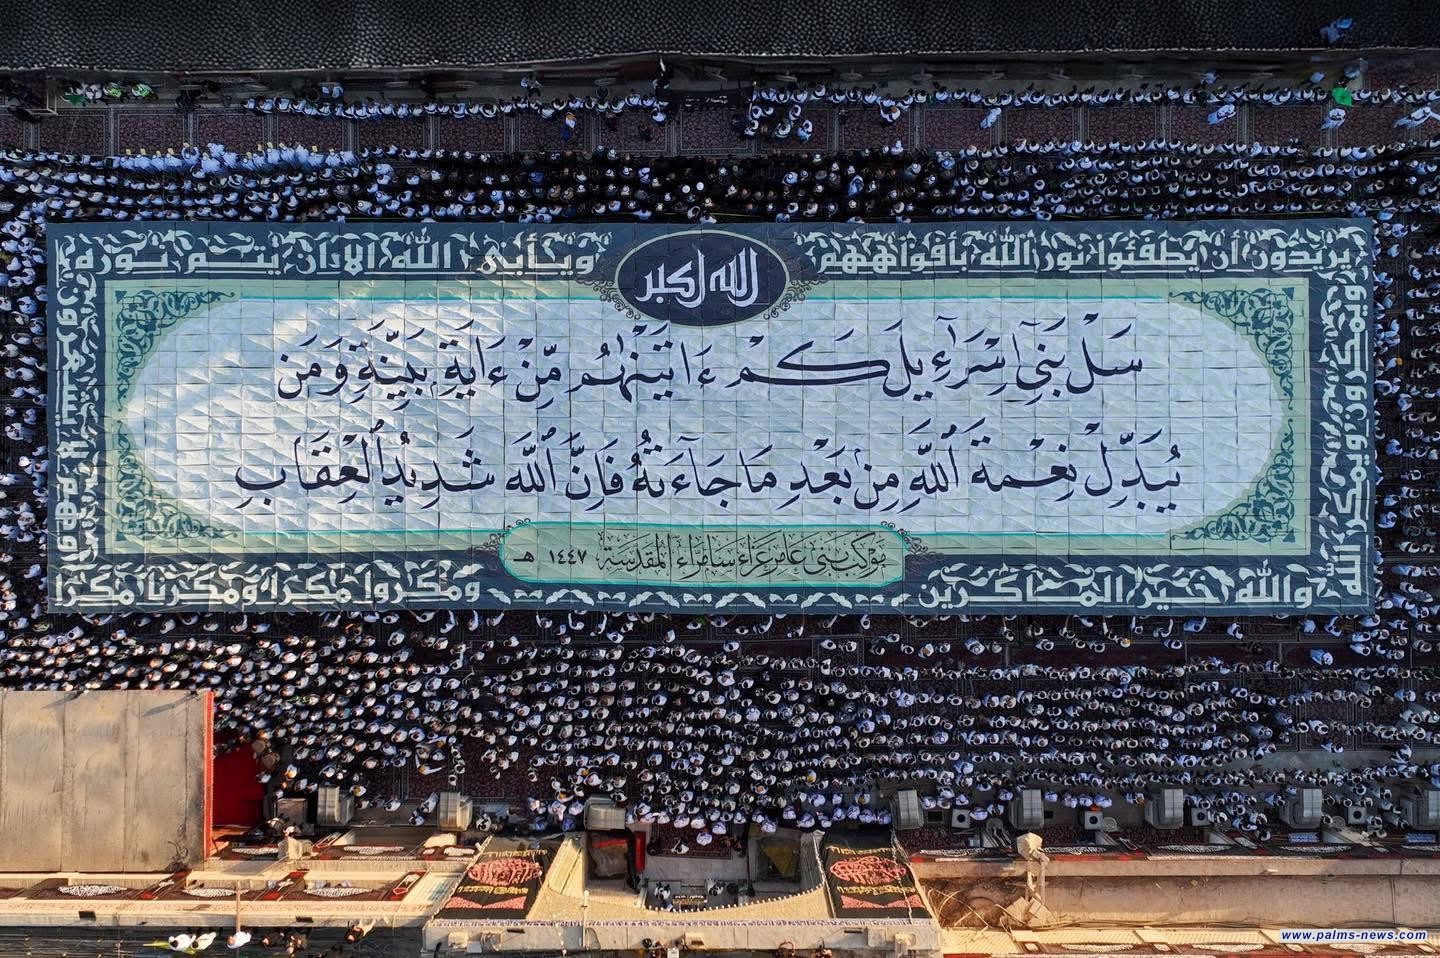 الله أكبر
يريدون أن يطفئوا نور الله بأفواههم
ويأبى الله إلا أن يتم نوره
سَلْ بَنِىٓ إِسْرَٰٓءِيلَ كَمْ ءَاتَيْنَٰهُم مِّنْ ءَايَةٍۭ بَيِّنَةٍ وَمَن
يُبَدِّلْ نِعْمَةَ ٱللَّهِ مِنۢ بَعْدِ مَا جَآءَتْهُ فَإِنَّ ٱللَّهَ شَدِيدُ ٱلْعِقَابِ
موكب بني عامر عزاء سامراء المقدسة ١٤٤٧ هـ
ويمكرون ويمكر الله
والله خير الماكرين
ومكروا مكرا ومكرنا مكرا
وهم لا يشعرون
www.palms-news.com